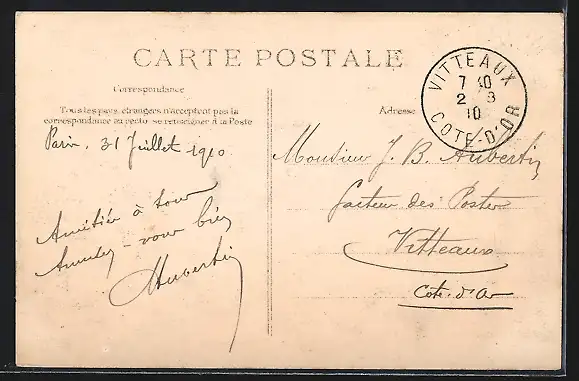 CARTE POSTALE
Correspondance
Tous les pays étrangers n'acceptent pas la
correspondance au recto se renseigner à la Poste
Paris, 31 Juillet 1910
Amitiés à tous
Amusez-vous bien
Aubertin
Adresse
VITTEAUX
7 40
2 - 8
10
COTE-D'OR
Monsieur J. B. Aubertin
facteur des Postes
Vitteaux
Côte-d'Or